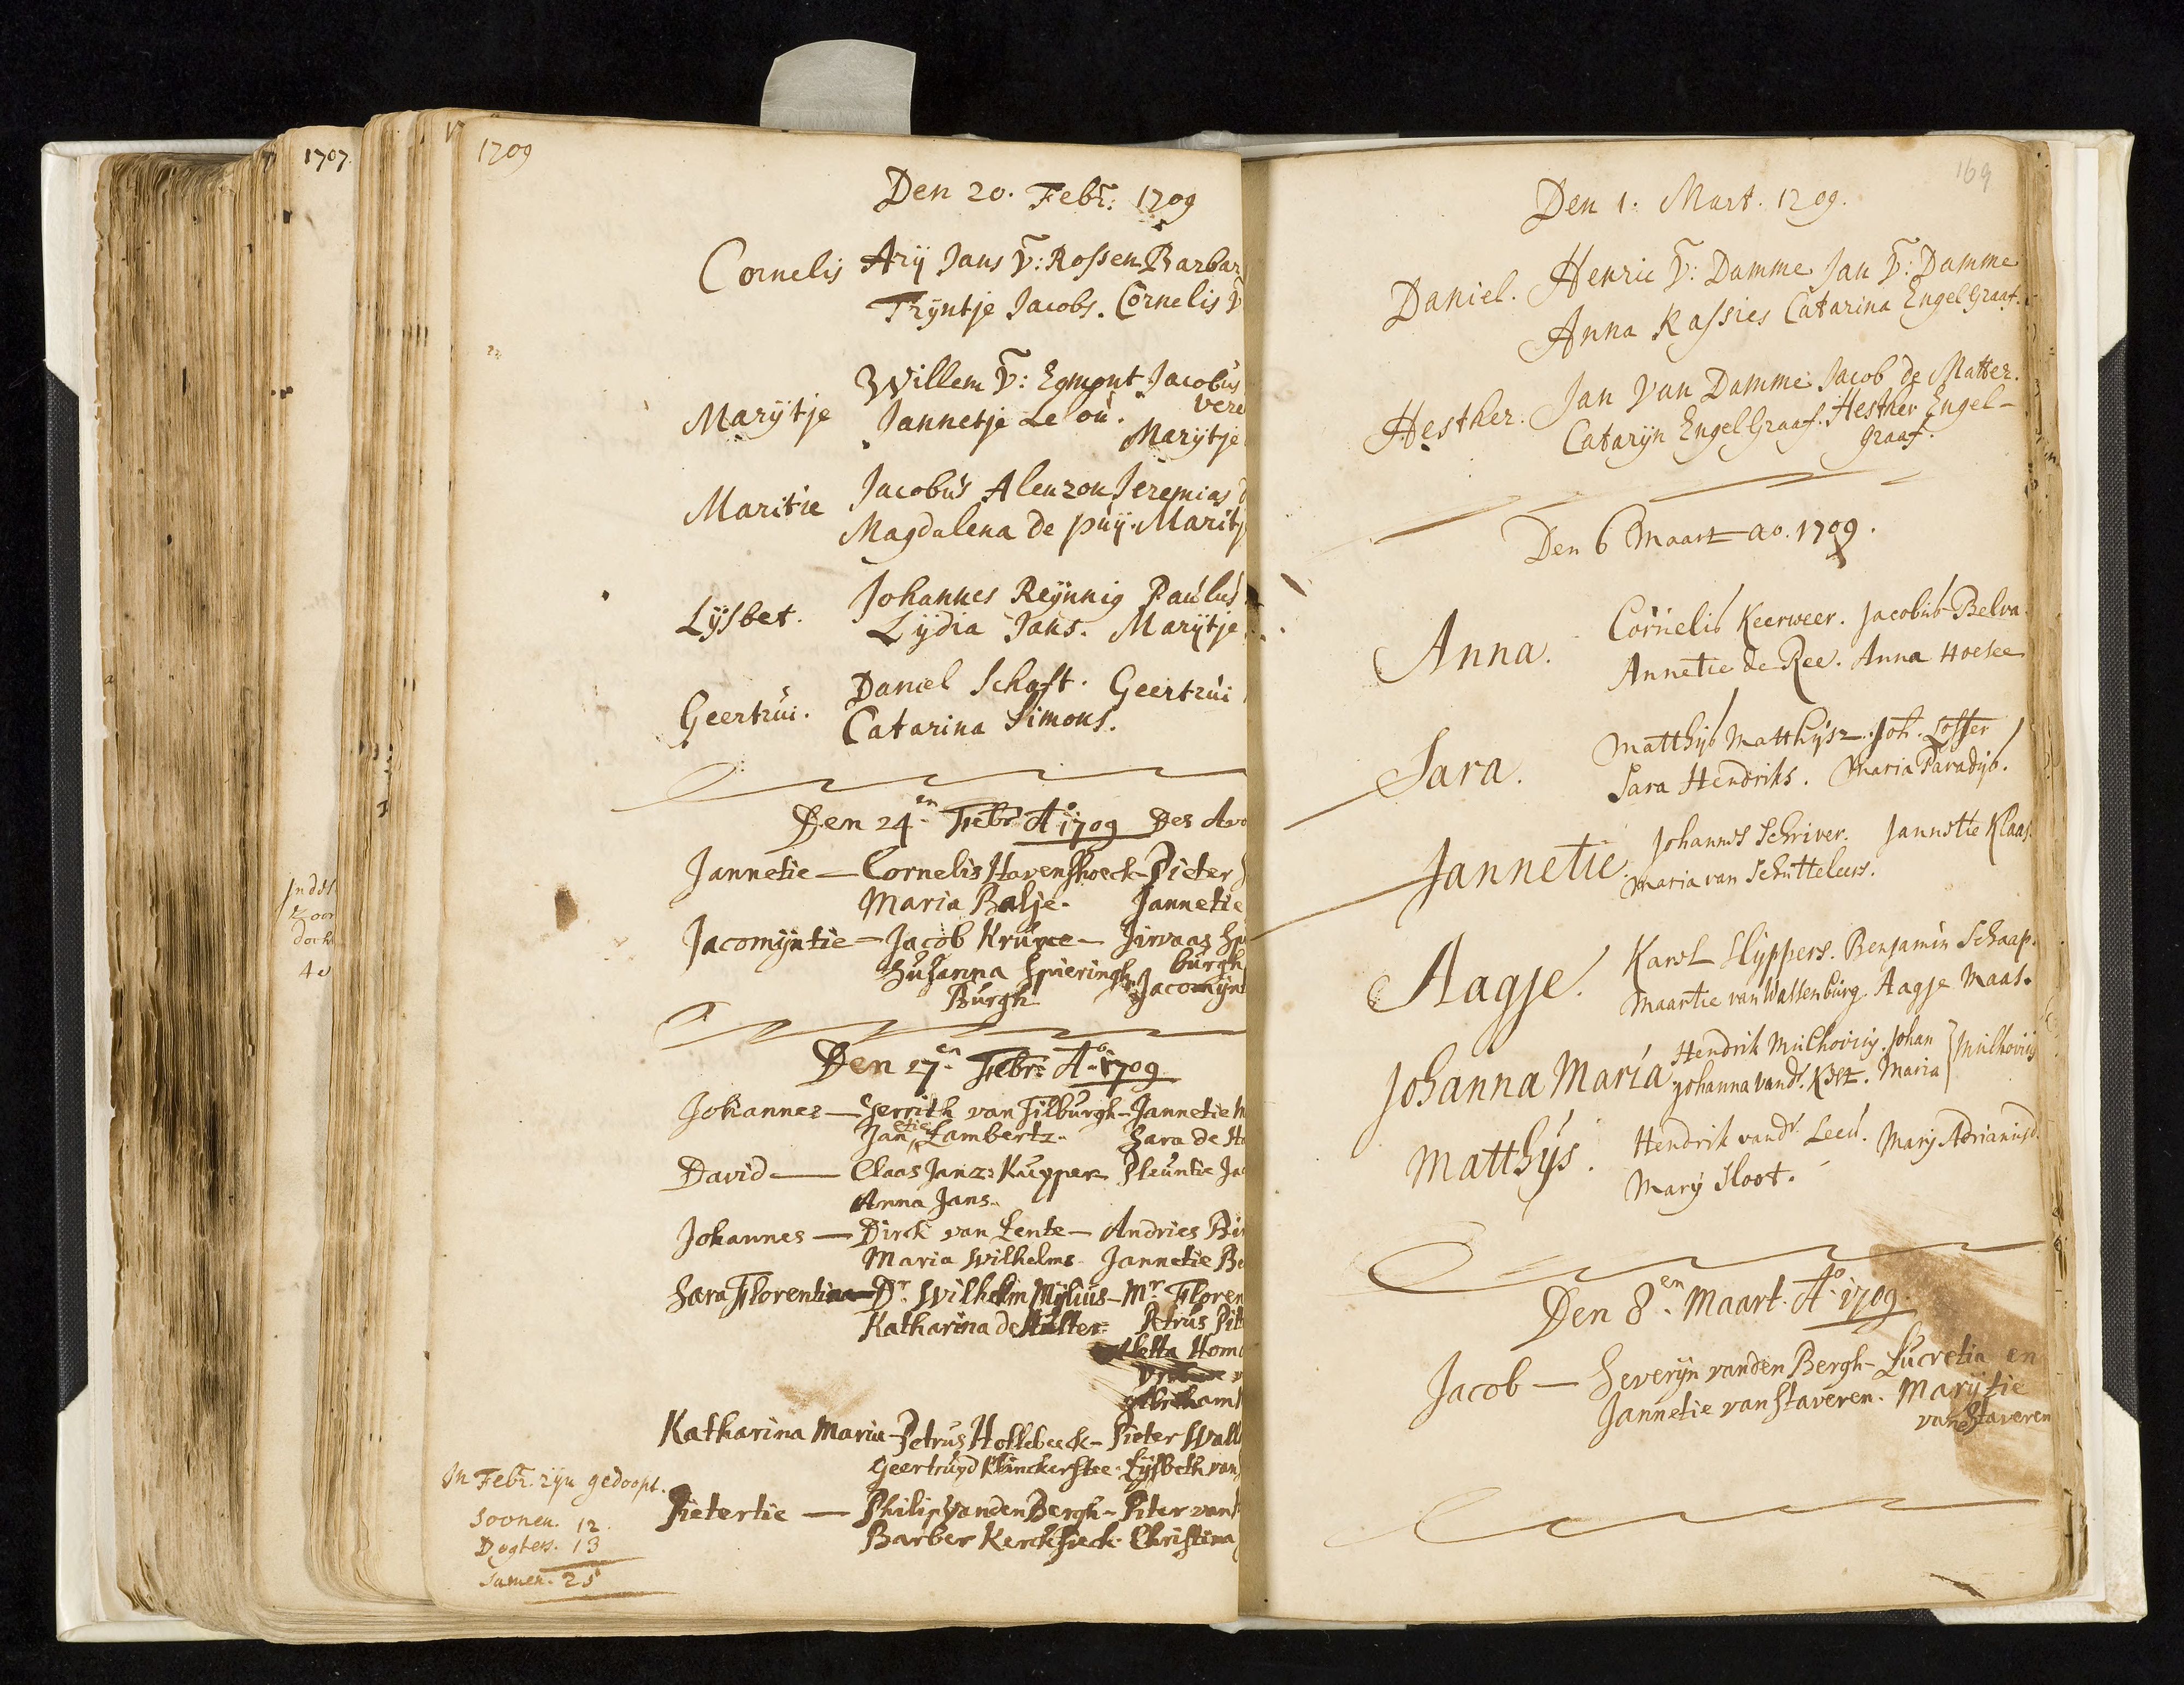 1707.
1709
Den 20. Febr: 1709
Cornelis Arij Jans v: Rossen Barbar
Trijntje Jacobs. Cornelis v
Willem v: Egmont Jacobus
Marijtje Jannetje Le ou. vere
Marijtje
Jacobus Alenzon Jeremias d
Maritie
Magdalena de puij. Maritj
Johannes Reijnnig Paulus
Lijsbet.
Lijdia Jans. Marijtje
Daniel Schaft. Geertrui
Geertrui.
Catarina Simons.
Den 24en Febr Ao 1709 Des Avo
Jannetie — Cornelis Havenshoeck - Pieter
Maria Balje. Jannetie
Jacomijntie — Jacob Kruyce — Jirvaas Sp
Susanna Spieringh burgh
Burgh Jacomijn
Den 27en Febr: Ao 1709
Johannes — Gerrith van Tilburgh - Jannetie
Jannetie Lambertz. Sara de Ho
David — Claas Janz: Kuyper Pleuntie Ja
Anna Jans.
Johannes — Dirck van Lente — Andries Bi
Maria Wilhelms Jannetie Be
Sara Florentina — Dr. Wilhelm Mylius — Mr. Floren
Katharina de Malter Petrus Pit
Aletta Hom
Abraham
Katharina Maria - Petrus Hollebeeck - Pieter Wall
Geertruyd Klinckerstee. Lijsbeth van
Pietertie — Philip vanden Bergh - Piter vant
Barber Kerckheck. Christina
In Febr. zijn gedoopt.
Soonen. 12.
Dogters. 13
Samen. 25
169
Den 1. Mart. 1709.
Daniel. Henric v: Damme Jan v: Damme
Anna Kassies Catarina Engel Graaf.
Hesther. Jan van Damme Jacob de Matter.
Catarijn Engel Graaf. Hesther Engel-
graaf.
Den 6 Maart ao. 1709.
Anna. Cornelis Keerweer. Jacobus Belva.
Annetie de Ree. Anna Hoesee
Sara. Matthijs Matthijsz. Joh. Loffer
Sara Hendriks. Maria Paradijs.
Jannetie. Johannes Schriver. Jannetie Klaas.
Maria van Schutteleurs.
Aagje. Karol Slyppers. Benjamin Schaap.
Maartie van Wassenburg. Aagje Maas.
Johanna Maria Hendrik Mulhovius. Johan } Mulhovius
Johanna vandr. Kst. Maria
Matthijs. Hendrik vandr Leeu. Marij Adrianusd.
Marij Sloot.
Den 8en Maart. Ao. 1709.
Jacob — Severijn vanden Bergh - Lucretia en
Jannetie van Staveren. Marijtie
van Staveren